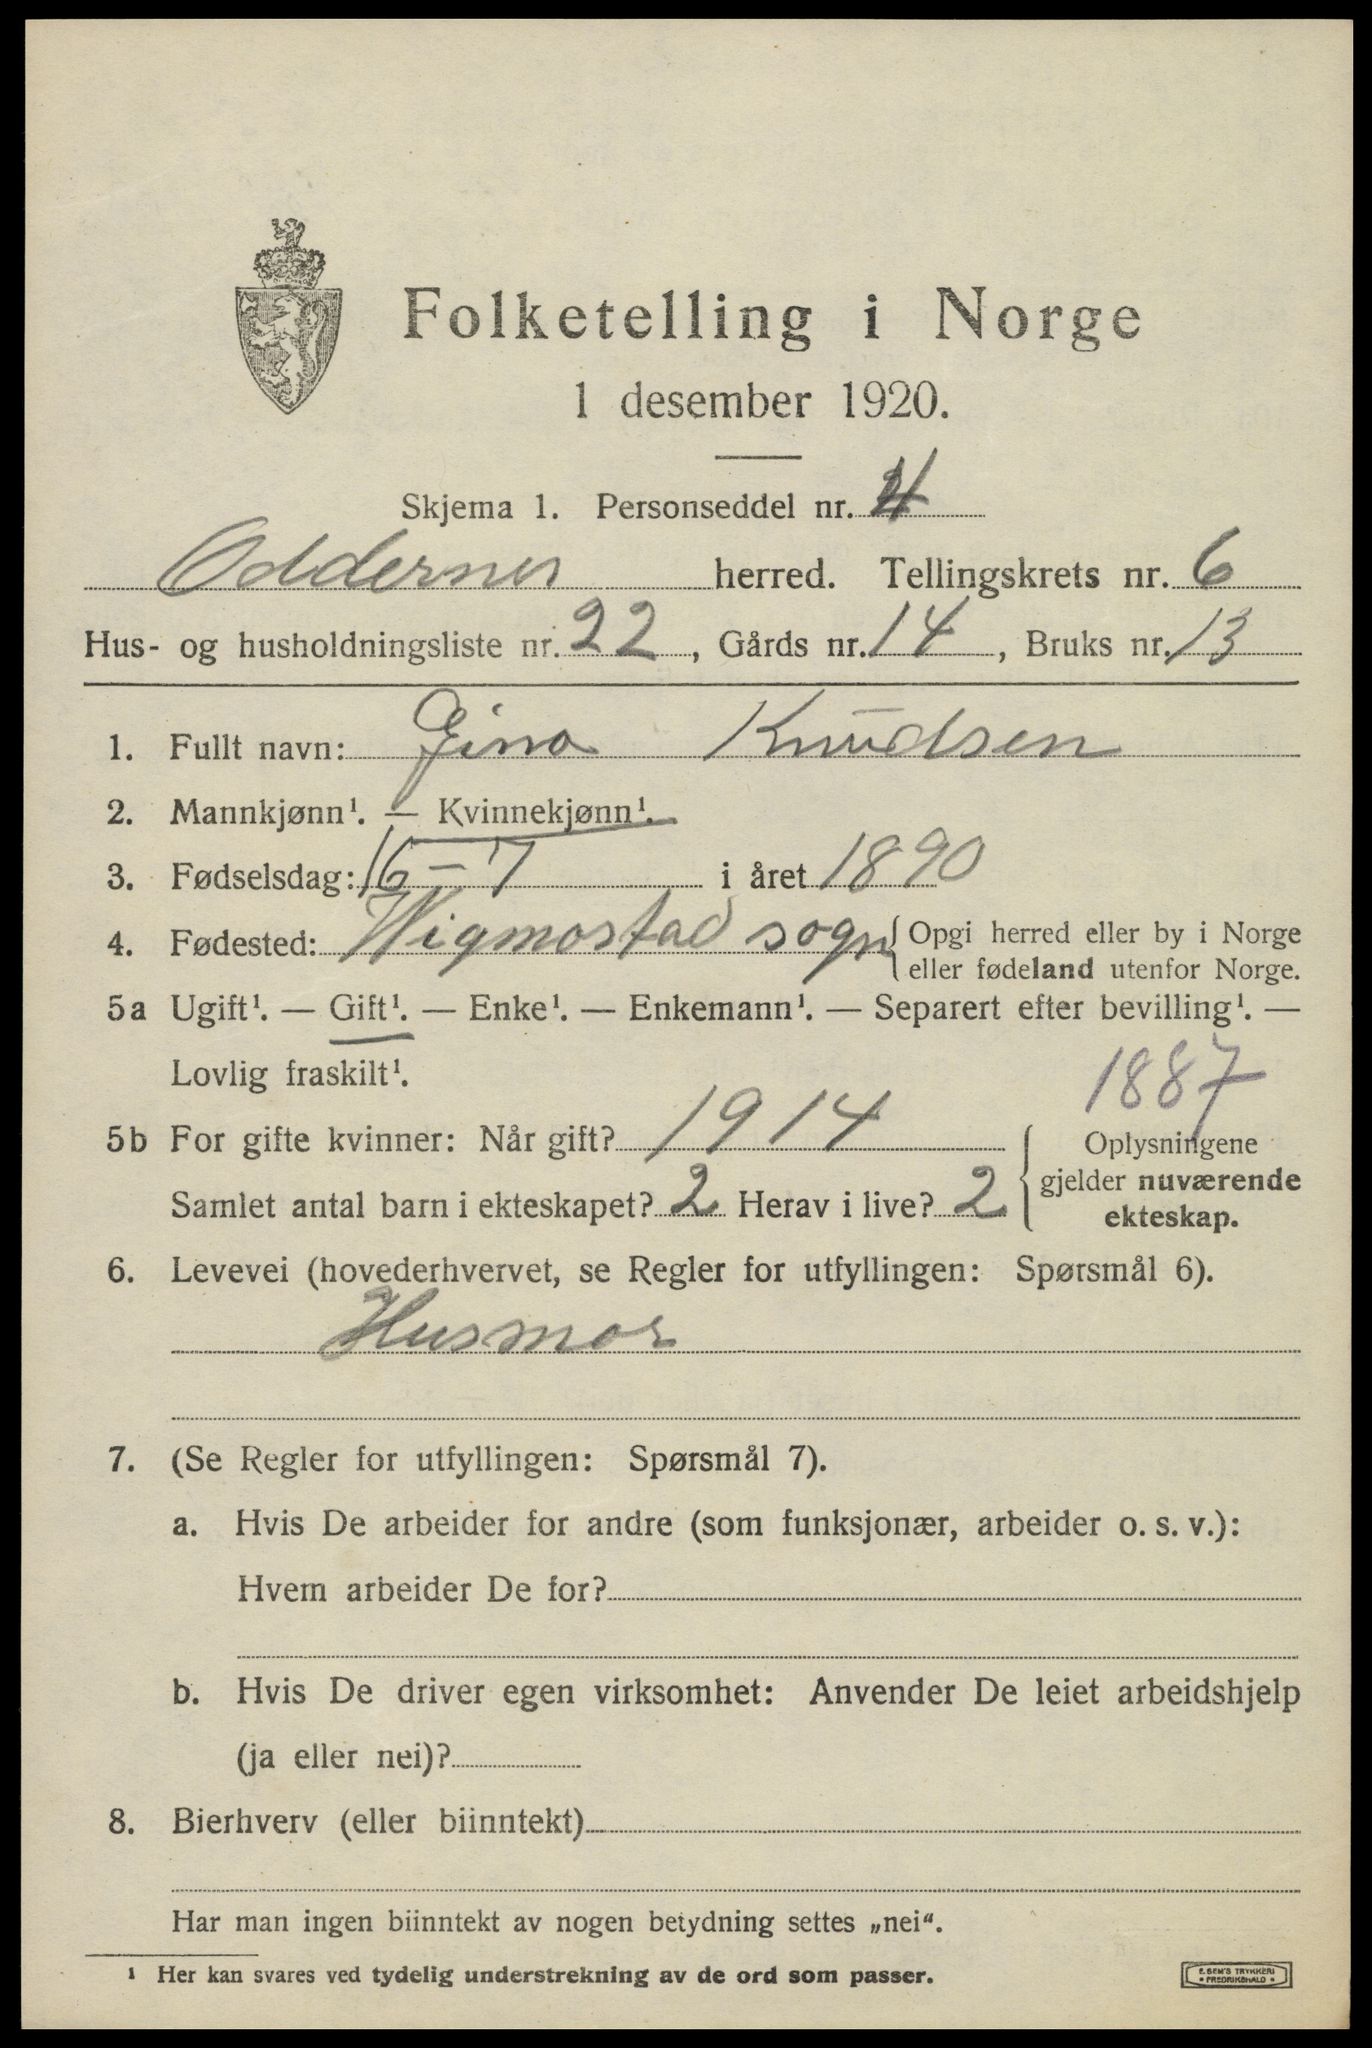 Folketelling i Norge
1 desember 1920.
Skjema 1. Personseddel nr. 4
Oddernes herred. Tellingskrets nr. 6
Hus- og husholdningsliste nr. 22, Gårds nr. 14, Bruks nr. 13
1. Fullt navn: Gina Knudsen
2. Mannkjønn¹. — Kvinnekjønn¹.
3. Fødselsdag: 16-7 i året 1890
4. Fødested: Wigmostad sogn { Opgi herred eller by i Norge
eller fødeland utenfor Norge.
5a Ugift¹. — Gift¹. — Enke¹. — Enkemann¹. — Separert efter bevilling¹. —
Lovlig fraskilt¹.
1887
5b For gifte kvinner: Når gift? 1914
Samlet antal barn i ekteskapet? 2 Herav i live? 2
{ Oplysningene
gjelder nuværende
ekteskap.
6. Levevei (hovederhvervet, se Regler for utfyllingen: Spørsmål 6).
Husmor
7. (Se Regler for utfyllingen: Spørsmål 7).
a. Hvis De arbeider for andre (som funksjonær, arbeider o. s. v.):
Hvem arbeider De for?
b. Hvis De driver egen virksomhet: Anvender De leiet arbeidshjelp
(ja eller nei)?
8. Bierhverv (eller biinntekt)
Har man ingen biinntekt av nogen betydning settes „nei“.
¹ Her kan svares ved tydelig understrekning av de ord som passer.
E. SEM'S TRYKKERI
• FREDRIKSHALD •